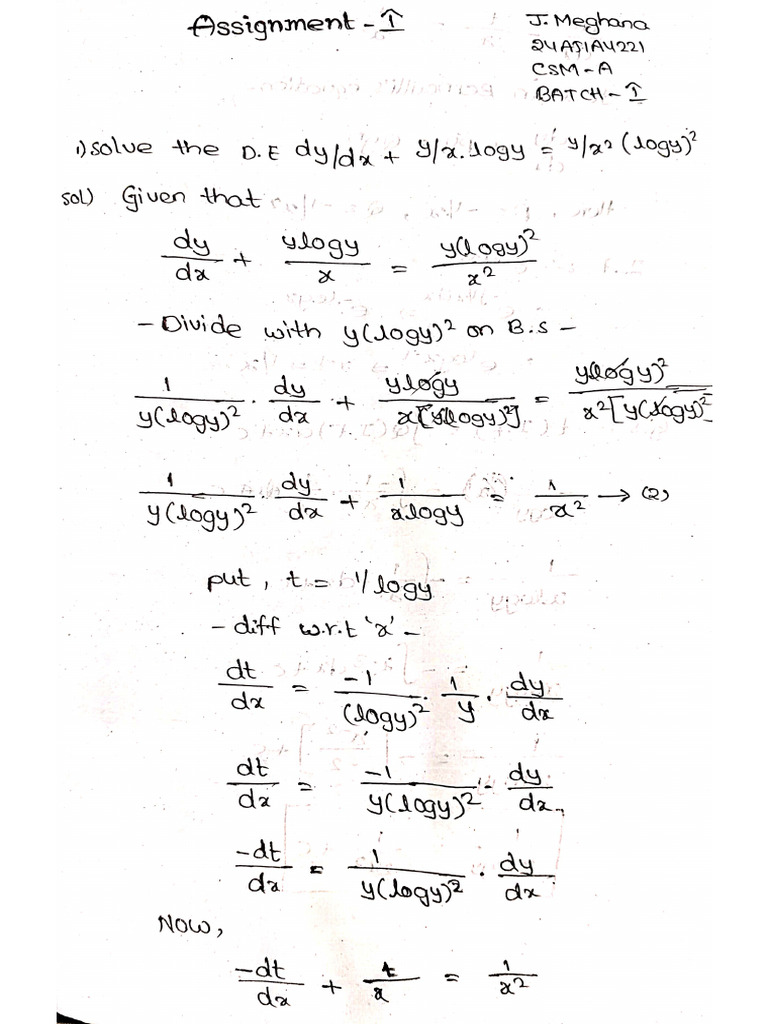 Assignment - I
J. Meghana
24A51A4221
CSM - A
BATCH - I
1) solve the D.E dy/dx + y/x. logy = y/x² (logy)²
sol) Given that
dy/dx + ylogy/x = y(logy)²/x²
- Divide with y(logy)² on B.S -
1/y(logy)² . dy/dx + ylogy/x[y(logy)²] = y(logy)²/x²[y(logy)²
1/y(logy)² . dy/dx + 1/xlogy = 1/x² → (2)
put, t = 1/logy
- diff w.r.t 'x' -
dt/dx = -1/(logy)² . 1/y . dy/dx
dt/dx = -1/y(logy)² . dy/dx
-dt/dx = 1/y(logy)² . dy/dx
NOW,
-dt/dx + t/x = 1/x²